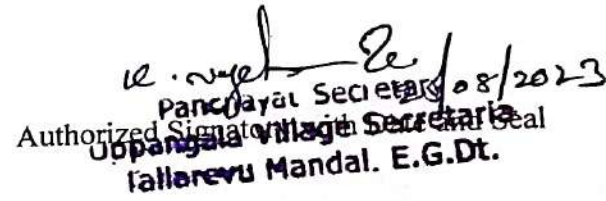 /08/2023
Panchayat Secretary
Authorized Signatory with Date and Seal
Uppangala Village Secretaria
Tallarevu Mandal. E.G.Dt.